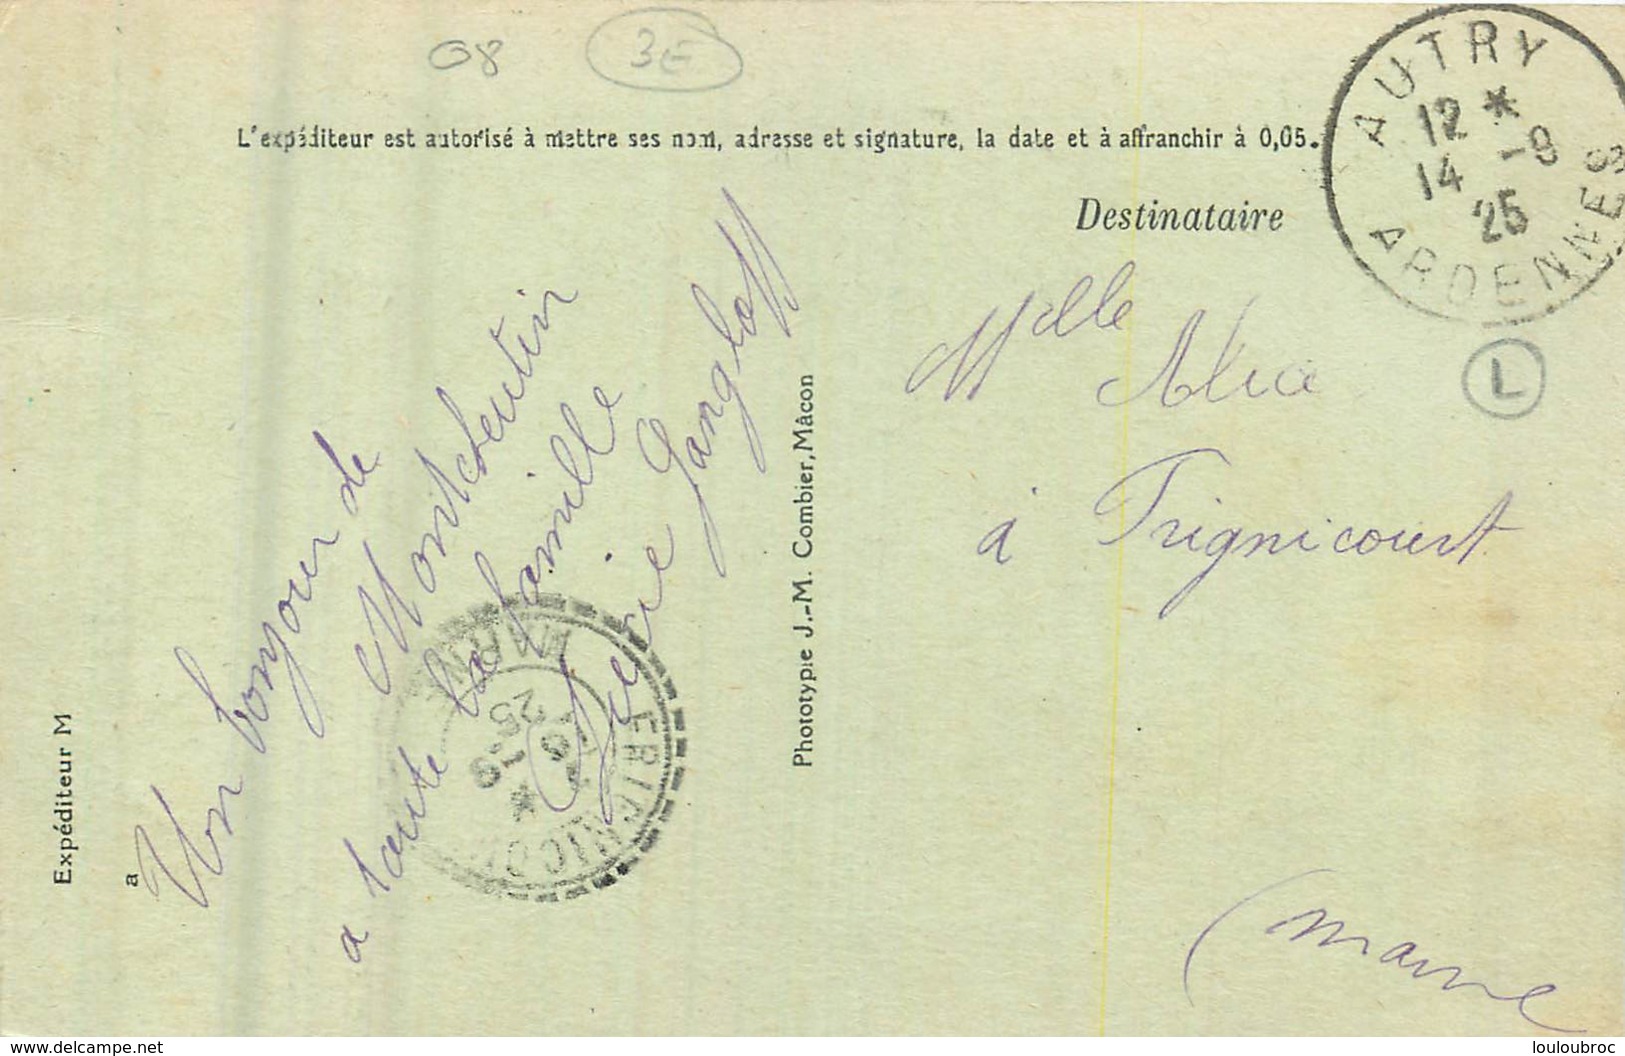 08
3E
L'expéditeur est autorisé à mettre ses nom, adresse et signature, la date et à affranchir à 0,05.
AUTRY
12 *
14 -9
25
ARDENNES
Destinataire
Melle Alice
à Frignicourt
(Marne
L
Un bonjour de
Montcheutin
a toute la famille
Gangloff
Expéditeur M
a
Phototypie J.-M. Combier, Mâcon
FRIGNICOURT
MARNE
-9
25
*
https://www.delcampe.net
louloubroc